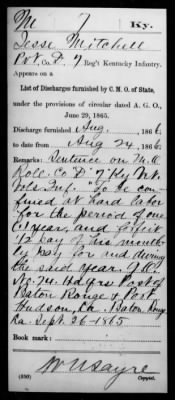 M 7 Ky.
Jesse Mitchell
Pvt. Co. D. 7 Reg't Kentucky Infantry.
Appears on a
List of Discharges furnished by C. M. O. of State,
under the provisions of circular dated A. G. O.,
June 29, 1865.
Discharge furnished Aug. , 1866
to date from Aug 24, 1866
Remarks: Sentence on M. O.
Roll. Co "D" 7 Ky Vet.
Vols. Inf. "To be con-
fined at hard labor
for the period of one
(1) year, and forfeit
1/2 pay of his month-
ly pay for and during
the said year. G.O.
No. 74. Hdqrs Post of
Baton Rouge & Port
Hudson, La. Baton Rouge
La. Sept. 26 - 1865
Book mark:
W Sayre
(639) Copyist.